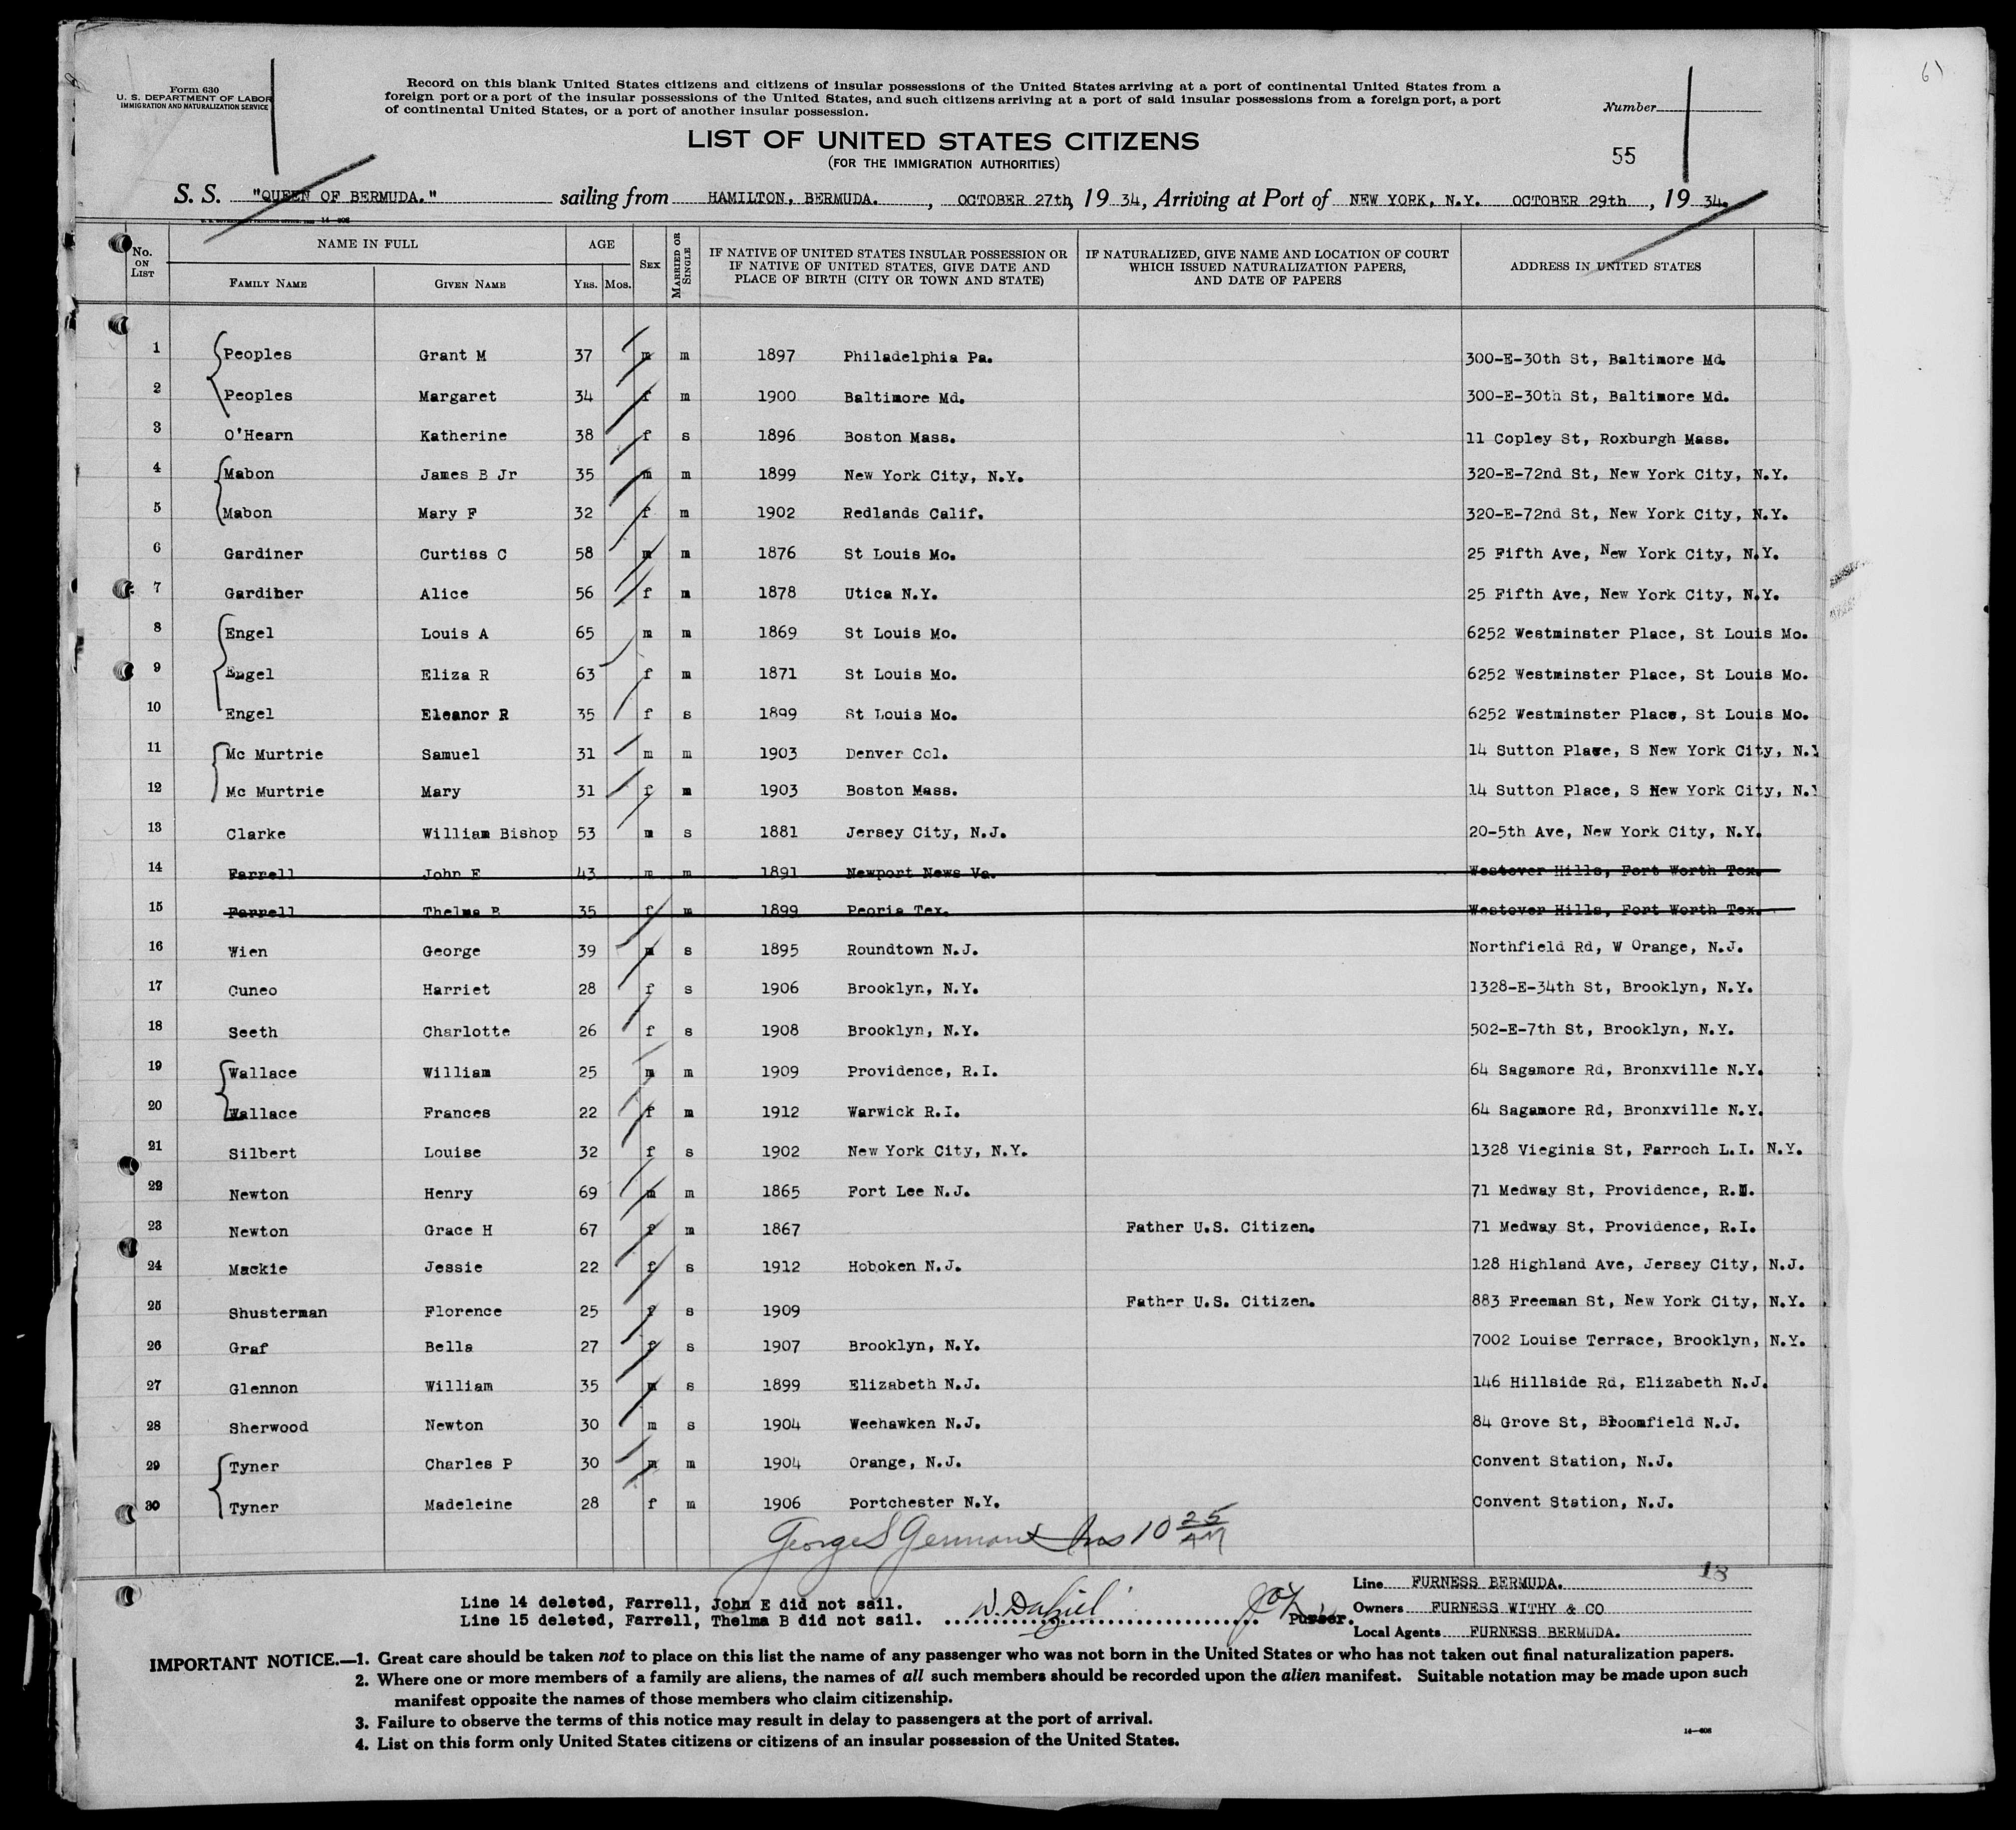 61
Form 630
U. S. DEPARTMENT OF LABOR
IMMIGRATION AND NATURALIZATION SERVICE
Record on this blank United States citizens and citizens of insular possessions of the United States arriving at a port of continental United States from a
foreign port or a port of the insular possessions of the United States, and such citizens arriving at a port of said insular possessions from a foreign port, a port
of continental United States, or a port of another insular possession.
Number
LIST OF UNITED STATES CITIZENS
(FOR THE IMMIGRATION AUTHORITIES)
55
S. S. "QUEEN OF BERMUDA." sailing from HAMILTON, BERMUDA. , OCTOBER 27th, 19 34, Arriving at Port of NEW YORK, N.Y. OCTOBER 29th , 19 34.
No. ON LIST NAME IN FULL AGE SEX MARRIED OR SINGLE IF NATIVE OF UNITED STATES INSULAR POSSESSION OR IF NATIVE OF UNITED STATES, GIVE DATE AND PLACE OF BIRTH (CITY OR TOWN AND STATE) IF NATURALIZED, GIVE NAME AND LOCATION OF COURT WHICH ISSUED NATURALIZATION PAPERS, AND DATE OF PAPERS ADDRESS IN UNITED STATES
FAMILY NAME GIVEN NAME YRS. MOS.
1 Peoples Grant M 37 m m 1897 Philadelphia Pa. 300-E-30th St, Baltimore Md.
2 Peoples Margaret 34 f m 1900 Baltimore Md. 300-E-30th St, Baltimore Md.
3 O'Hearn Katherine 38 f s 1896 Boston Mass. 11 Copley St, Roxburgh Mass.
4 Mabon James B Jr 35 m m 1899 New York City, N.Y. 320-E-72nd St, New York City, N.Y.
5 Mabon Mary F 32 f m 1902 Redlands Calif. 320-E-72nd St, New York City, N.Y.
6 Gardiner Curtiss C 58 m m 1876 St Louis Mo. 25 Fifth Ave, New York City, N.Y.
7 Gardiner Alice 56 f m 1878 Utica N.Y. 25 Fifth Ave, New York City, N.Y.
8 Engel Louis A 65 m m 1869 St Louis Mo. 6252 Westminster Place, St Louis Mo.
9 Engel Eliza R 63 f m 1871 St Louis Mo. 6252 Westminster Place, St Louis Mo.
10 Engel Eleanor R 35 f s 1899 St Louis Mo. 6252 Westminster Place, St Louis Mo.
11 Mc Murtrie Samuel 31 m m 1903 Denver Col. 14 Sutton Place, S New York City, N.Y
12 Mc Murtrie Mary 31 f m 1903 Boston Mass. 14 Sutton Place, S New York City, N.Y
13 Clarke William Bishop 53 m s 1881 Jersey City, N.J. 20-5th Ave, New York City, N.Y.
14 Farrell John E 43 m m 1891 Newport News Va. Westover Hills, Fort Worth Tex.
15 Farrell Thelma B 35 f m 1899 Peoria Tex. Westover Hills, Fort Worth Tex.
16 Wien George 39 m s 1895 Roundtown N.J. Northfield Rd, W Orange, N.J.
17 Cuneo Harriet 28 f s 1906 Brooklyn, N.Y. 1328-E-34th St, Brooklyn, N.Y.
18 Seeth Charlotte 26 f s 1908 Brooklyn, N.Y. 502-E-7th St, Brooklyn, N.Y.
19 Wallace William 25 m m 1909 Providence, R.I. 64 Sagamore Rd, Bronxville N.Y.
20 Wallace Frances 22 f m 1912 Warwick R.I. 64 Sagamore Rd, Bronxville N.Y.
21 Silbert Louise 32 f s 1902 New York City, N.Y. 1328 Vieginia St, Farroch L.I. N.Y.
22 Newton Henry 69 m m 1865 Fort Lee N.J. 71 Medway St, Providence, R.I.
23 Newton Grace H 67 f m 1867 Father U.S. Citizen. 71 Medway St, Providence, R.I.
24 Mackie Jessie 22 f s 1912 Hoboken N.J. 128 Highland Ave, Jersey City, N.J.
25 Shusterman Florence 25 f s 1909 Father U.S. Citizen. 883 Freeman St, New York City, N.Y.
26 Graf Bella 27 f s 1907 Brooklyn, N.Y. 7002 Louise Terrace, Brooklyn, N.Y.
27 Glennon William 35 m s 1899 Elizabeth N.J. 146 Hillside Rd, Elizabeth N.J.
28 Sherwood Newton 30 m s 1904 Weehawken N.J. 84 Grove St, Bloomfield N.J.
29 Tyner Charles P 30 m m 1904 Orange, N.J. Convent Station, N.J.
30 Tyner Madeleine 28 f m 1906 Portchester N.Y. Convent Station, N.J.
George S Germond Ins 10 25 AM
18
Line FURNESS BERMUDA.
Line 14 deleted, Farrell, John E did not sail.
Line 15 deleted, Farrell, Thelma B did not sail. Purser.
Owners FURNESS WITHY & CO
Local Agents FURNESS BERMUDA.
IMPORTANT NOTICE.—1. Great care should be taken not to place on this list the name of any passenger who was not born in the United States or who has not taken out final naturalization papers.
2. Where one or more members of a family are aliens, the names of all such members should be recorded upon the alien manifest. Suitable notation may be made upon such
manifest opposite the names of those members who claim citizenship.
3. Failure to observe the terms of this notice may result in delay to passengers at the port of arrival.
4. List on this form only United States citizens or citizens of an insular possession of the United States.
14—608